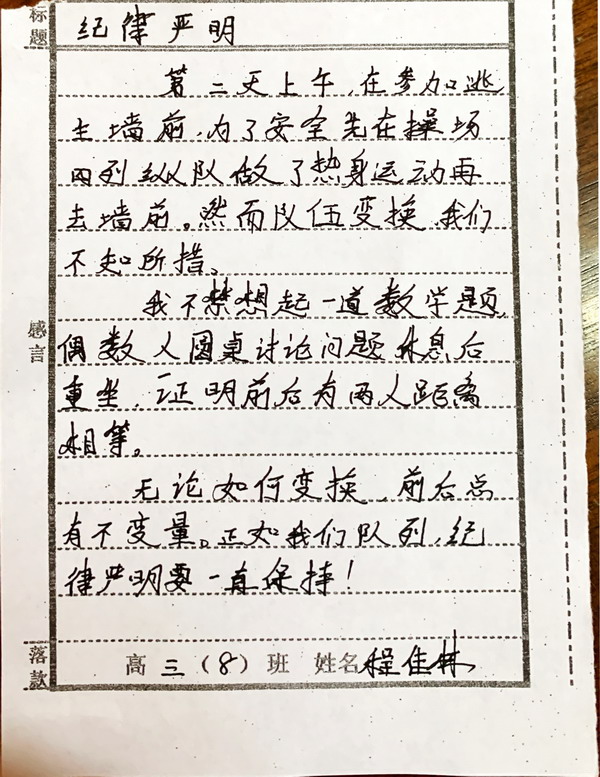 标题 纪律严明
第二天上午,在参加逃
生墙前,为了安全先在操场
四列纵队做了热身运动再
去墙前。然而队伍变换,我们
不知所措。
我不禁想起一道数学题,
偶数人圆桌讨论问题休息后
重坐,证明前后有两人距离
相等。
无论如何变换,前后总
有不变量。正如我们队列,纪
律严明要一直保持!
感言
落款 高三(8)班 姓名程佳林